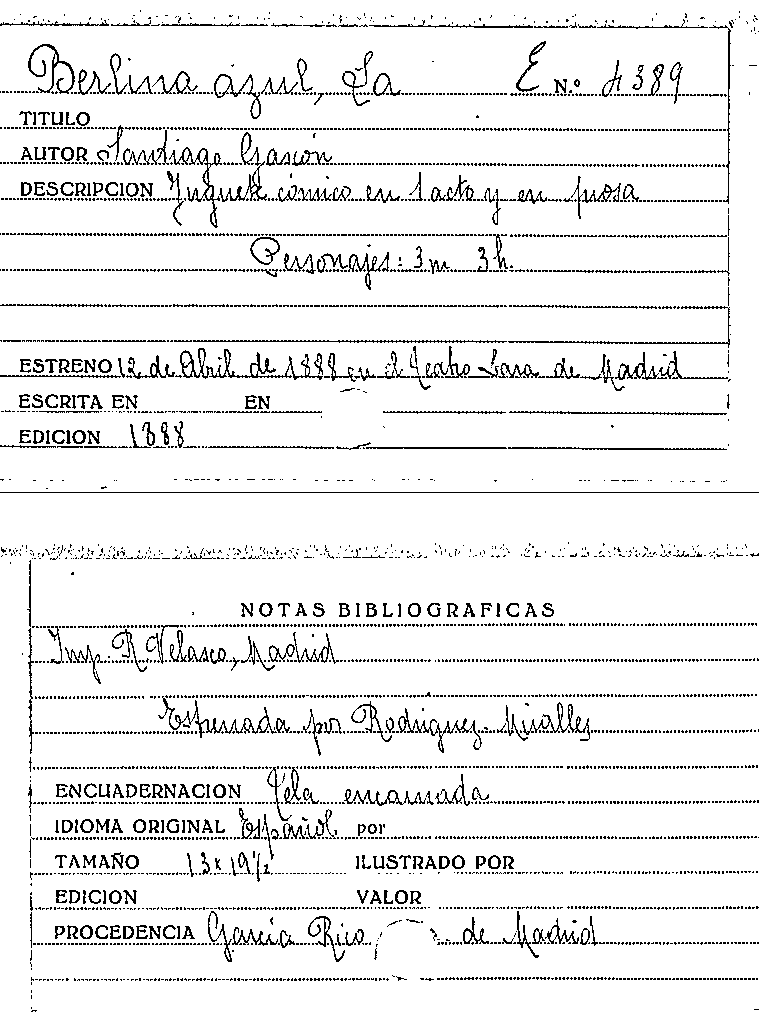 Berlina azul, La E N.º 4389
TITULO
AUTOR Santiago Gascón
DESCRIPCION Juguete cómico en 1 acto y en prosa
Personajes: 3 m 3 h.
ESTRENO 12 de Abril de 1888 en el Teatro Lara de Madrid
ESCRITA EN EN
EDICION 1888
NOTAS BIBLIOGRAFICAS
Imp. R. Velasco, Madrid
Estrenada por Rodriguez-Miralles
ENCUADERNACION Tela encarnada
IDIOMA ORIGINAL Español por
TAMAÑO 13 x 19 1/2 ILUSTRADO POR
EDICION VALOR
PROCEDENCIA García Rico de Madrid